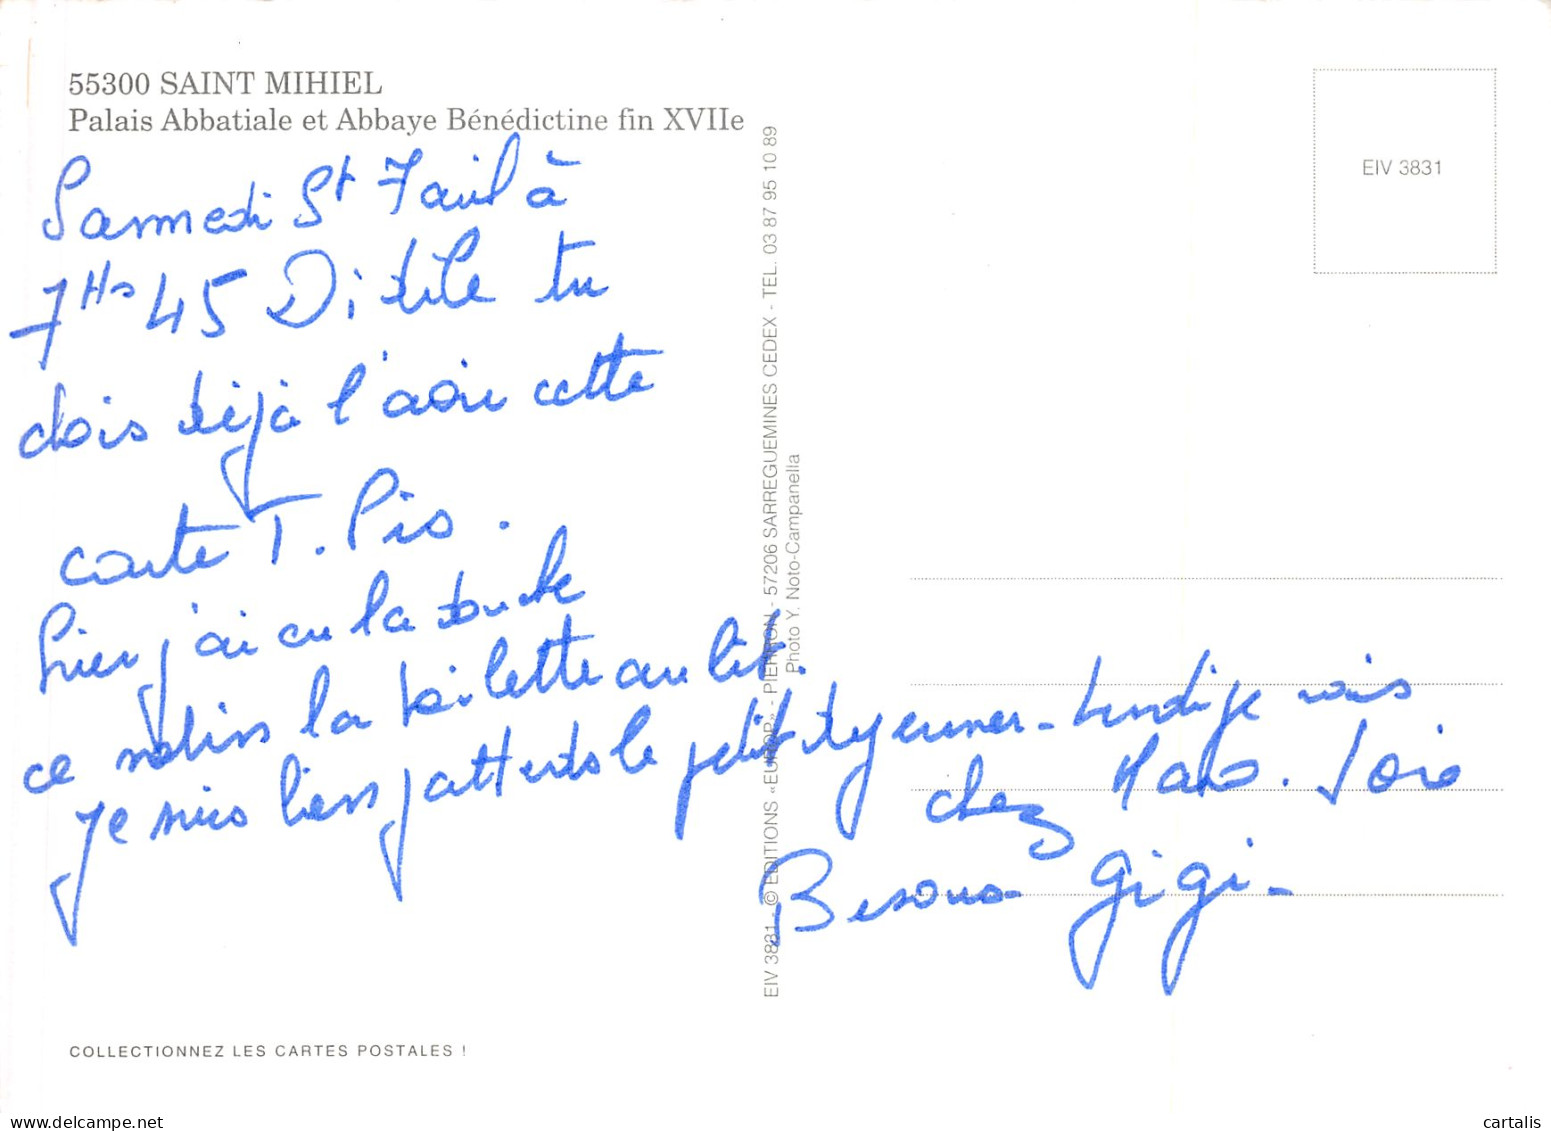 55300 SAINT MIHIEL
Palais Abbatiale et Abbaye Bénédictine fin XVIIe
EIV 3831
Samedi St Paul à
7Hs 45 Odile tu
dois déjà l'avoir cette
carte T. Pis.
hier j'ai eu la douche
ce matin la toilette au lit.
je suis bien j'attends le petit dejeuner - Lundi je vais
chez
Besons Gigi -
EIV 3831 - © EDITIONS «EUROP» - PIERRON - 57206 SARREGUEMINES CEDEX - TEL. 03 87 95 10 89
Photo Y. Noto-Campanella
COLLECTIONNEZ LES CARTES POSTALES !
cartalis